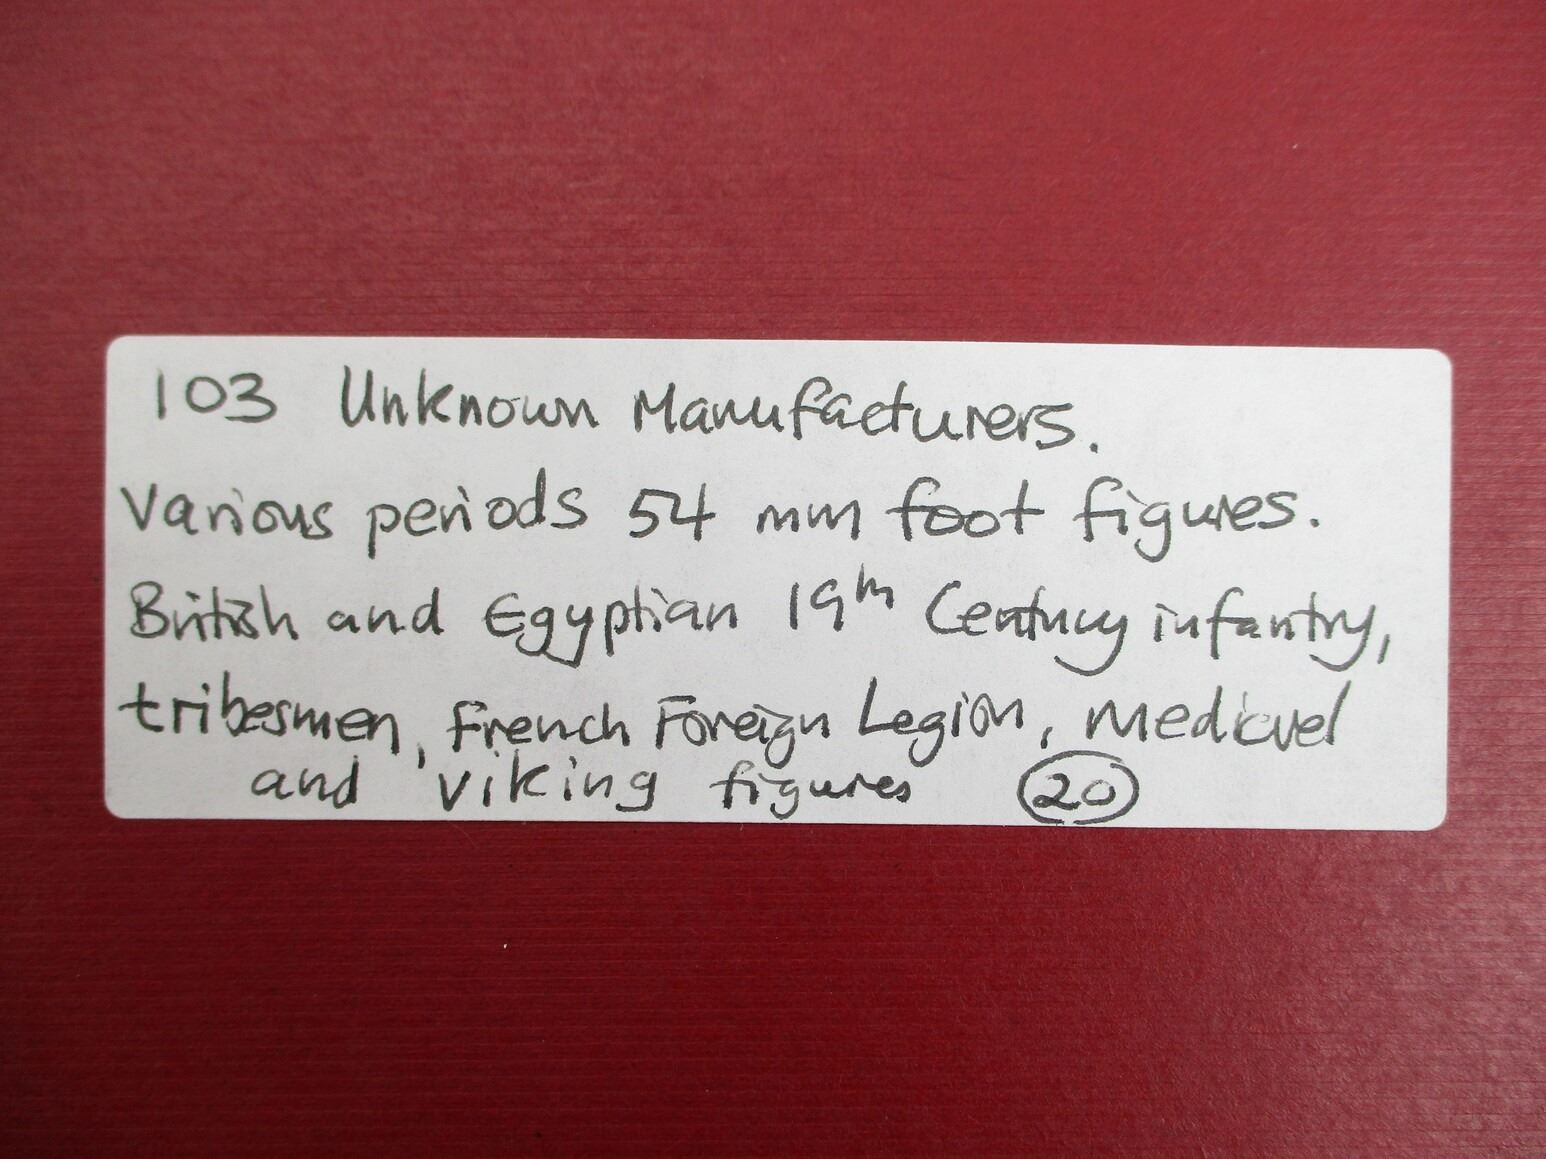 103 Unknown Manufacturers.
Various periods 54 mm foot figures.
British and Egyptian 19th Century infantry,
tribesmen, French Foreign Legion, Medieval
and Viking figures 20